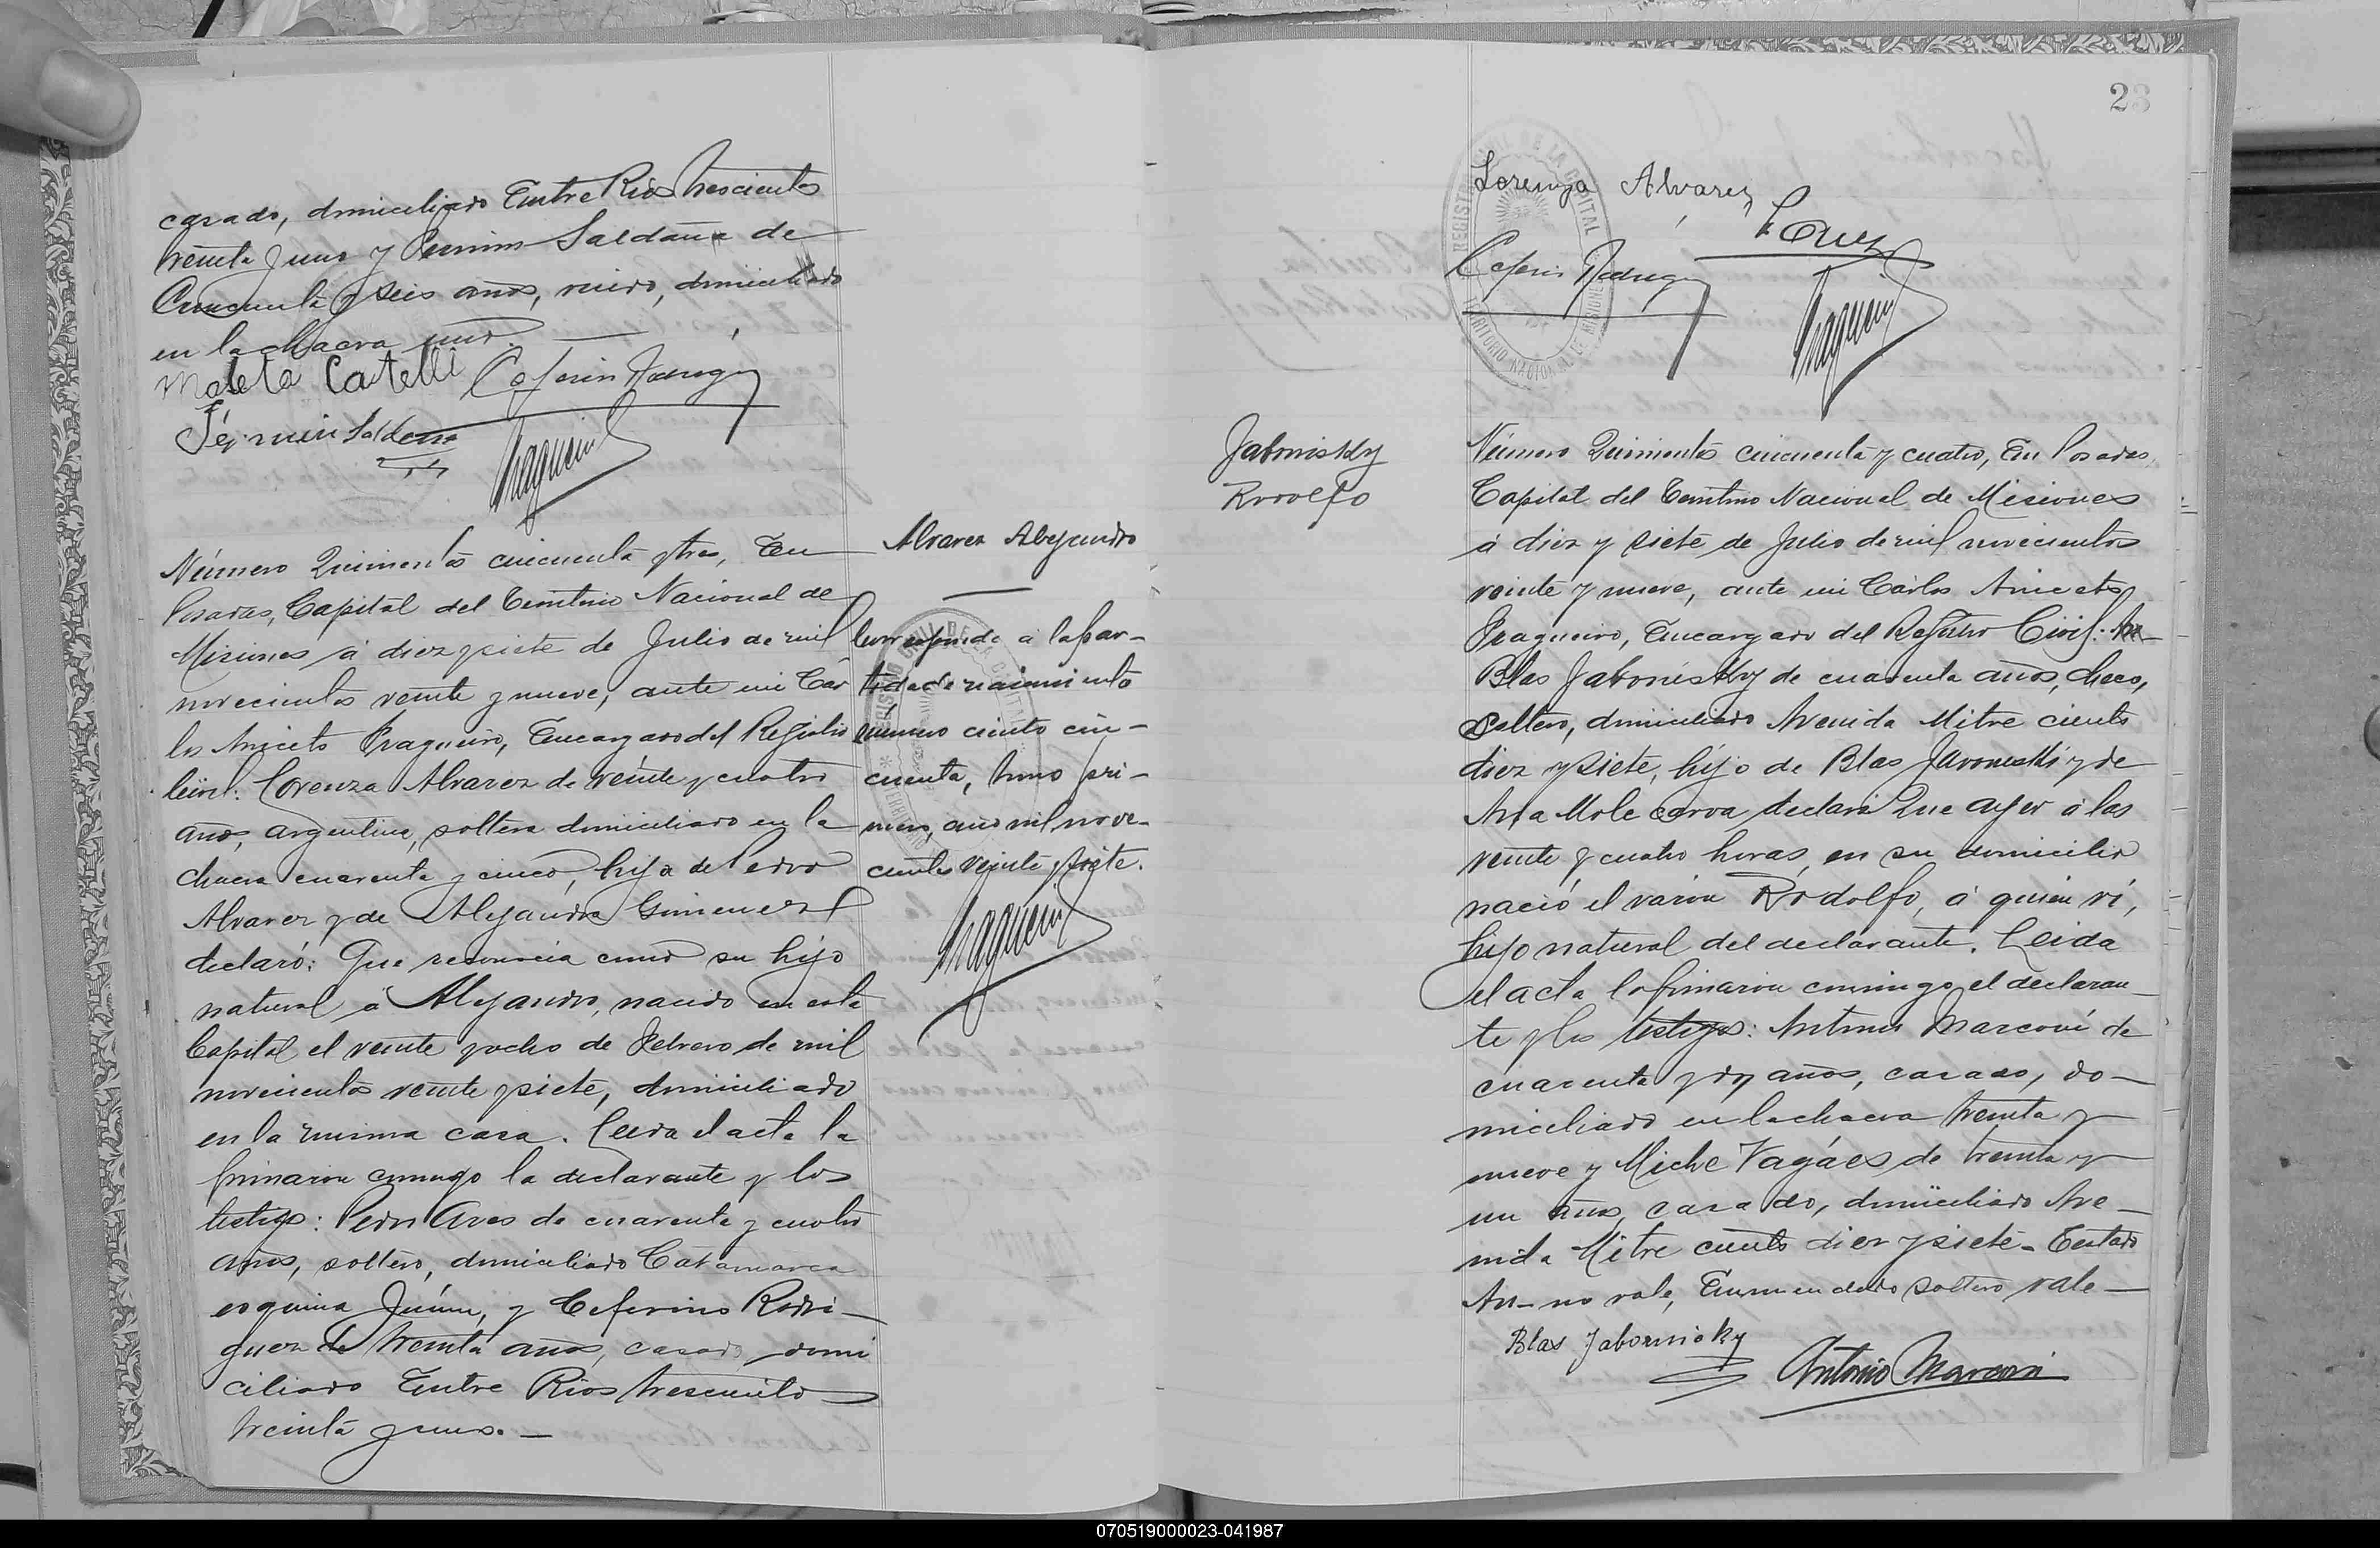 casado, domiciliado Entre Rios trescientos
treinta y uno y Fermin Saldaña de
Cincuenta y seis años, viudo, domiciliado
en la chacra uno.
Castelli Ceferin Rodrig
Fermin Saldana
Fragueiro
Número Quinientos cincuenta y tres, En
Posadas, Capital del Territorio Nacional de
Misiones á diez y siete de Julio de mil
novecientos veinte y nueve, ante mi Cár
los Aniceto Fragueiro, Encargado del Registro
Civil: Lorenza Alvarez de veinte y cuatro
años, argentina, soltera domiciliado en la
chacra cuarenta y cinco, hija de Pedro
Alvarez y de Alejandra Gimenez
declaró: Que reconocia como su hijo
natural á Alejandro, nacido en esta
Capital el veinte y ocho de Febrero de mil
novecientos veinte y siete, domiciliado
en la misma casa. Leida el acta la
firmaron conmigo la declarante y los
testigos: Pedro de cuarenta y cuatro
años, soltero, domiciliado Catamarca
esquina Junin, y Ceferino Rodri-
guez de treinta años, casado, domi
ciliado Entre Rios trescientos
treinta y uno.-
Alvarez Alejandro
Corresponde á la par-
tida de nacimiento
número ciento cin-
cuenta, tomo pri-
mero, año mil nove-
cientos veinte y siete.
Fragueiro
23
Lorenza Alvarez
Ceferin Rodrig
Fragueiro
REGISTRO CIVIL DE LA CAPITAL
TERRITORIO NACIONAL DE MISIONES
Jabornisky
Rodolfo
Número Quinientos cincuenta y cuatro, En Posadas,
Capital del Territorio Nacional de Misiones
á diez y siete de Julio de mil novecientos
veinte y nueve, ante mi Cárlos Aniceto
Fragueiro, Encargado del Registro Civil: An-
Blas Jabornisky de cuarenta años, checo,
soltero, domiciliado Avenida Mitre ciento
diez y siete, hijo de Blas Javorneski y de
Ana declaró Que ayer á las
veinte y cuatro horas, en su domicilio
nació el varón Rodolfo, á quien ví,
hijo natural del declarante. Leida
el acta la firmaron conmigo el declaran-
te y los testigos: Antonio Marconi de
cuarenta y dos años, casado, do-
miciliado en la chacra treinta y
nueve y Miche Vagáes de treinta y
un años, casado, domiciliado Ave-
nida Mitre ciento diez y siete - Testado
An- no vale, Enmendado soltero vale-
Blas Jabornisky
Antonio Marconi
070519000023-041987